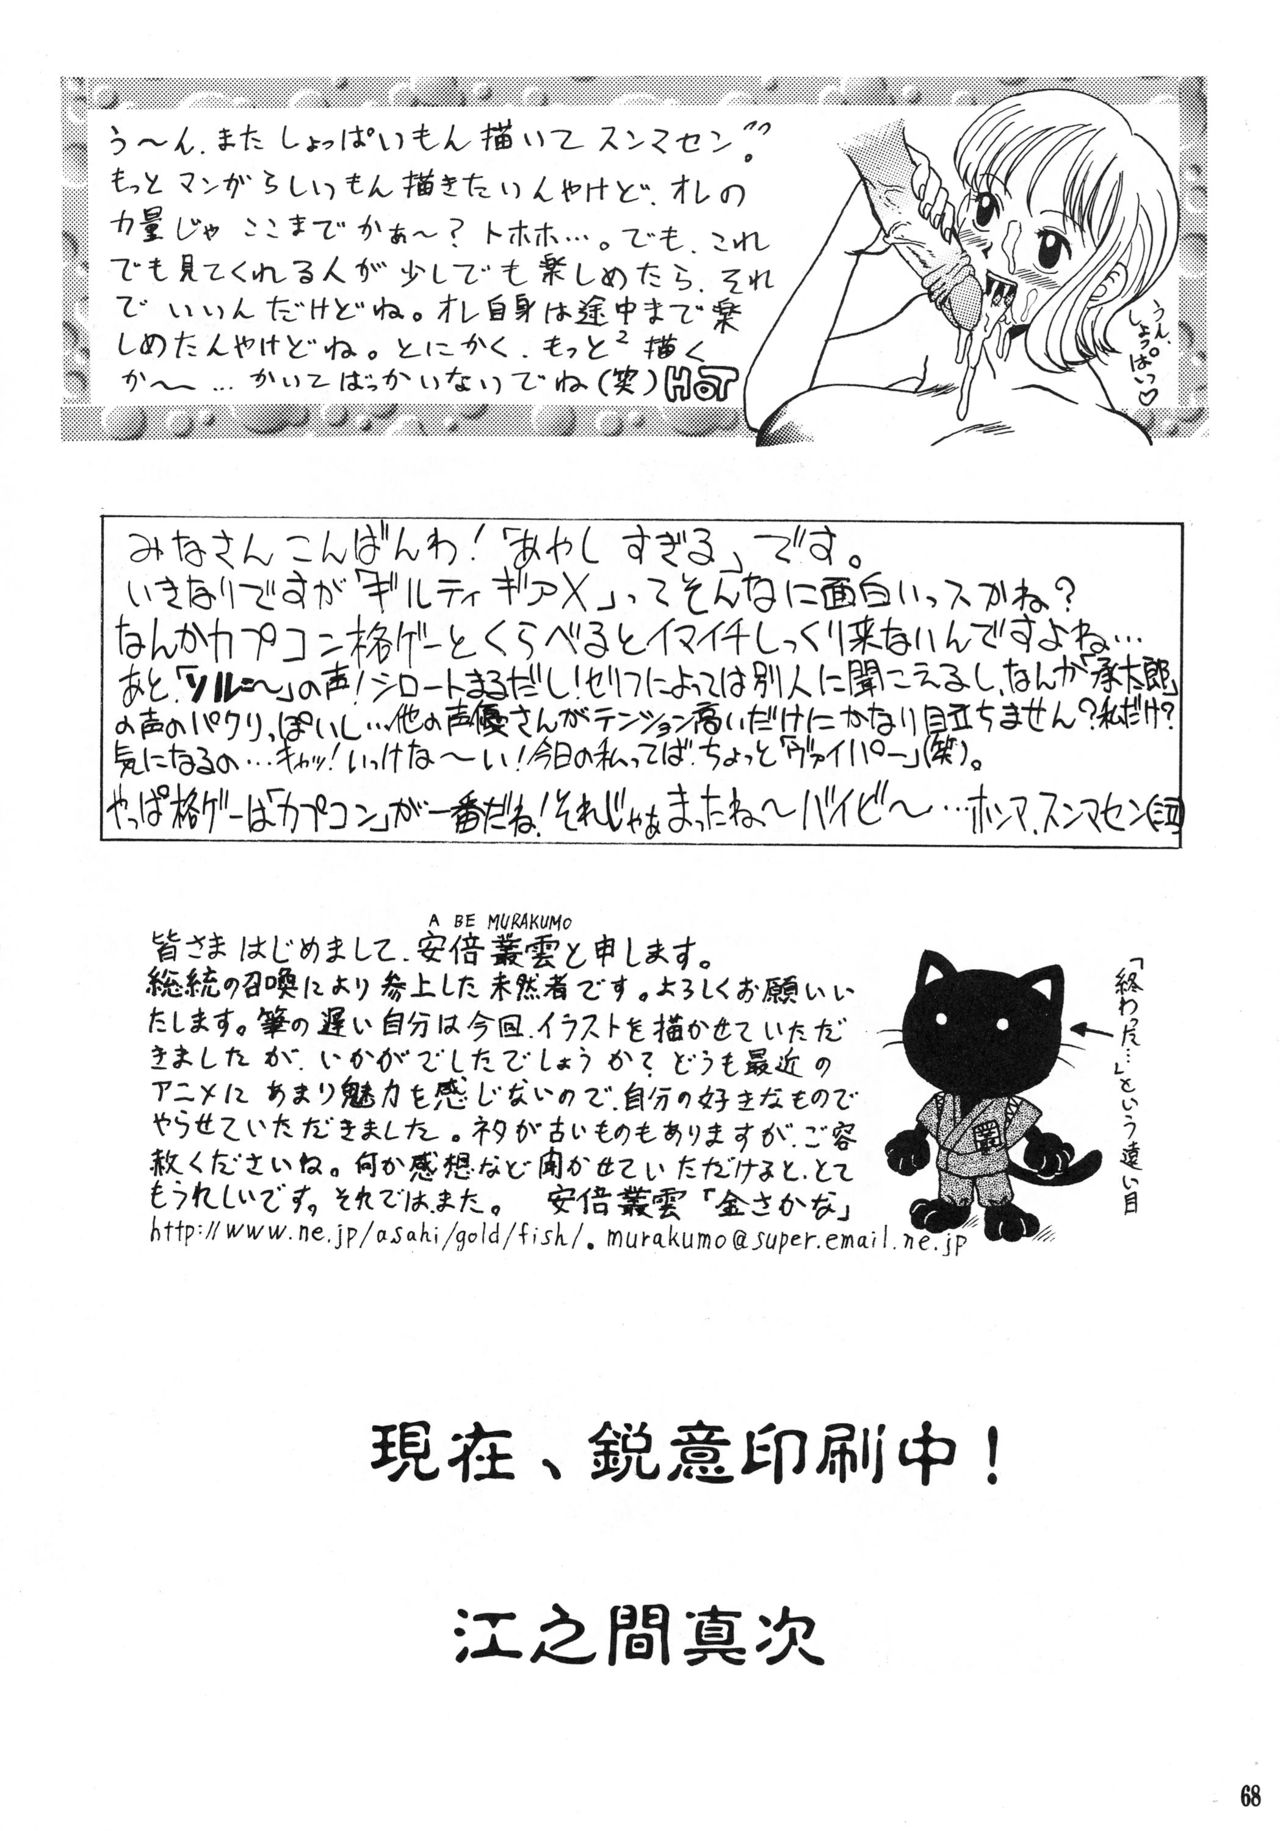 う〜ん、またしょっぱいもん描いてスンマセン。
もっとマンガらしいもん描きたいんやけど、オレの
力量じゃここまでかぁ〜？トホホ…。でも、これ
でも見てくれる人が少しでも楽しめたら、それ
でいいんだけどね。オレ自身は途中まで楽
しめたんやけどね。とにかく、もっと²描く
か〜…かいてばっかいないでね(笑)HOT
うん、
しょっぱいっ♡
みなさんこんばんわ！「あやしすぎる」です。
いきなりですが「ギルティギアX」ってそんなに面白いっスかね？
なんかカプコン格ゲーとくらべるとイマイチしっくり来ないんですよね…
あと、「ソル＝〜」の声！シロートまるだし！セリフによっては別人に聞こえるし、なんか「承太郎」
の声のパクリっぽいし…他の声優さんがテンション高いだけにかなり目立ちません？私だけ？
気になるの…キャッ！いっけな〜い！今日の私ってば、ちょっと「ヴァイパー」(笑)。
やっぱ格ゲーは「カプコン」が一番だね！それじゃぁまったね〜バイビ〜…ホンマ、スンマセン
A BE MURAKUMO
皆さまはじめまして、安倍叢雲と申します。
総統の召喚により参上した未然者です。よろしくお願いい
たします。筆の遅い自分は今回、イラストを描かせていただ
きましたが、いかがでしたでしょうか？どうも最近の
アニメにあまり魅力を感じないので、自分の好きなもので
やらせていただきました。ネタが古いものもありますが、ご容
赦くださいね。何か感想など聞かせていただけると、とて
もうれしいです。それでは、また。 安倍叢雲「金さかな」
http://www.ne.jp/asahi/gold/fish/. murakumo@super.email.ne.jp
「終わった…」という遠い目
現在、鋭意印刷中！
江之間真次
68